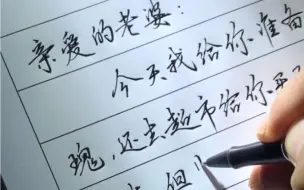 亲爱的老婆:
今天我给你准备
瑰,还去超市给你买
但